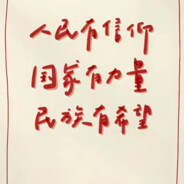 人民有信仰
国家有力量
民族有希望